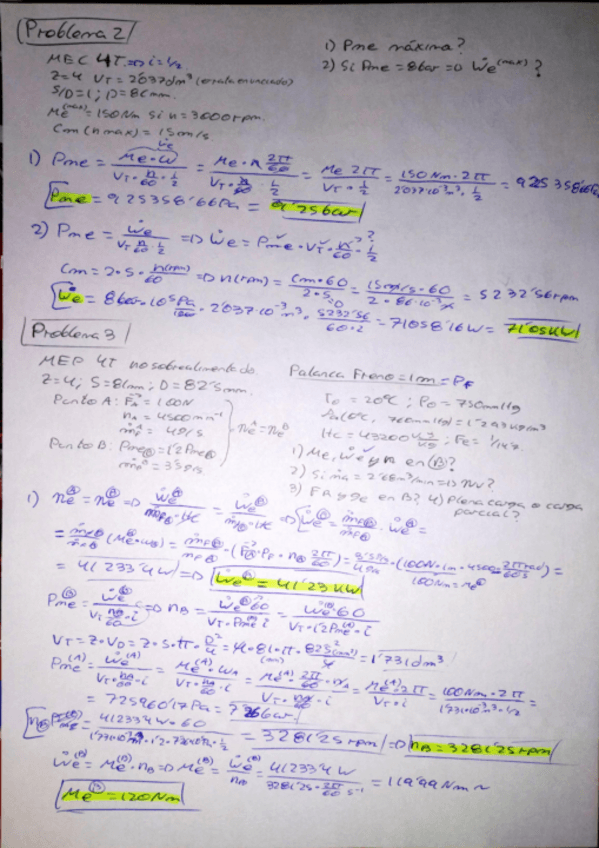 Problema 2
MEC 4T => i = 1/2
Z=4 VT = 2'037 dm³ (en el enunciado)
S/D=1; D=86mm.
Me(max) = 150Nm si n=3000rpm.
Cm(nmax) = 15m/s
1) Pme máxima?
2) Si Pme = 8bar => Ẇe(max)?
1) Pme = Me·ω / (VT·n/60·1/2) = Me·n 2π/60 / (VT·n/60·1/2) = Me 2π / (VT·1/2) = 150Nm·2π / (2'037·10⁻³m³·1/2) = 925358'66Pa
Pme = 925358'66Pa = 9'25bar
2) Pme = Ẇe / (VT·n/60·1/2) => Ẇe = Pme·VT·n/60·1/2
Cm = 2·S·n(rpm)/60 => n(rpm) = Cm·60 / 2·S = 15m/s·60 / 2·86·10⁻³ = 5232'56rpm
Ẇe = 8bar·10⁵Pa/bar·2'037·10⁻³m³·5232'56/60·2 = 71058'16W = 71'05kW
Problema 3
MEP 4T no sobrealimentado.
Z=4; S=81mm; D=82'5mm.
Punto A: FA = 100N
nA = 4500min⁻¹
ṁfA = 4g/s
ηeA = ηeB
Punto B: PmeB = 1'2PmeA
ṁfB = 3'5g/s
Palanca Freno = 1m = PF
T0 = 20ºC; P0 = 750mmHg
760mmHg) = 1'293kg/m³
Hc = 43200 kJ/kg; Fe = 1/14'7
1) Me, Ẇe y n en (B)?
2) Si ṁa = 2'68m³/min => ηv?
3) FR y ge en B? 4) Plena carga o carga
parcial?
1) ηeA = ηeB => ẆeA / ṁfA·Hc = ẆeB / ṁfB·Hc => ẆeB = ṁfB/ṁfA·ẆeA =
= ṁfB/ṁfA (MeA·ωA) = ṁfB/ṁfA·(FA·PF·nA 2π/60) = 3'5g/s / 4g/s·(100N·1m·4500·2πrad/60s) =
100Nm = MeA
= 41233'4W => ẆeB = 41'23kW
PmeB = ẆeB / (VT nB/60·i) => nB = ẆeB 60 / VT·PmeB·i = ẆeB·60 / VT·1'2PmeA·i
VT = Z·VD = Z·S·π·D²/4 = 4·81·π·82'5²(mm²)/4 = 1'731dm³
Pme(A) = Ẇe(A) / (VT nA/60·i) = Me(A)·ωA / (VT·nA/60·i) = Me(A) 2π/60·nA / (VT·nA/60·i) = Me(A)·2π / VT·i = 100Nm·2π / 1'731·10⁻³m³·1/2 =
= 725960'17Pa = 7'26bar
nB = 41233'4W·60 / = 3281'25rpm => nB = 3281'25rpm
Ẇe(B) = Me(B)·nB => Me(B) = Ẇe(B)/nB = 41233'4W / 3281'25·2π/60 s⁻¹ = 119'99Nm ~
Me(B) = 120Nm